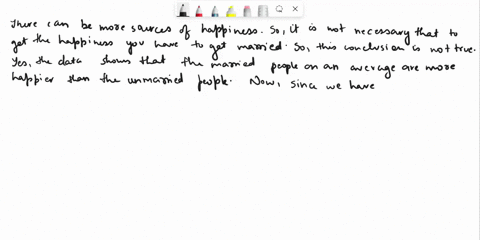 There can be more sources of happiness. So, it is not necessary that to
get the happiness you have to get married. So, this conclusion is not true.
Yes, the data shows that the married people on an average are more
happier than the unmarried people. Now, since we have